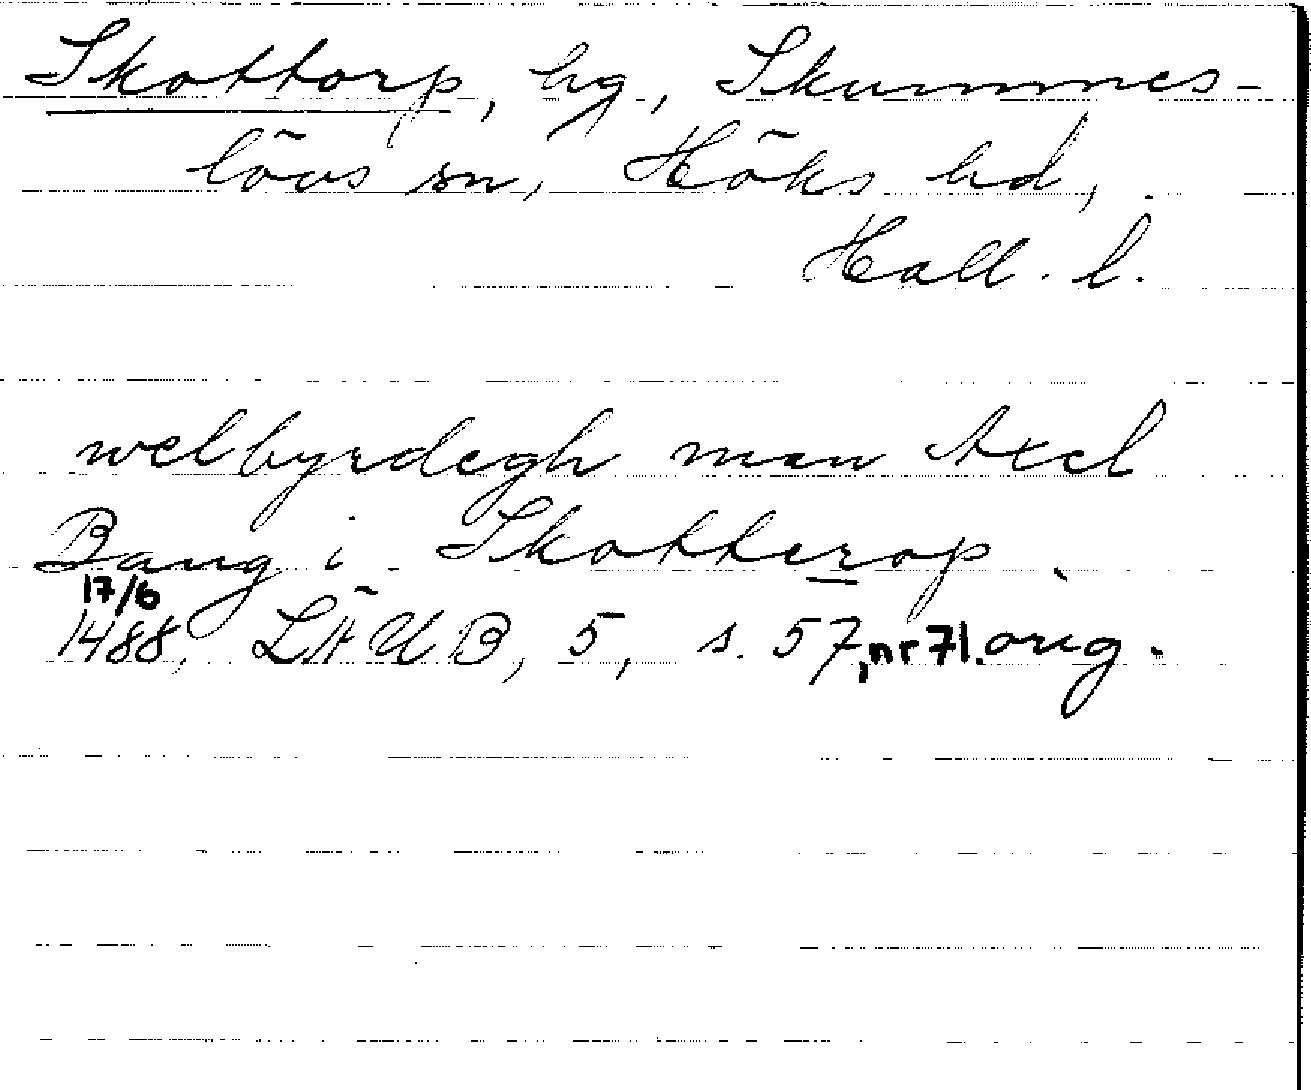 Skottorp, hg, Skummes-
lövs sn, Höks hd,
Hall. l.
welbyrdegh man Axel
Bang i Skotterop.
17/6
1488, LÄUB, 5, s. 57, nr 71. orig.